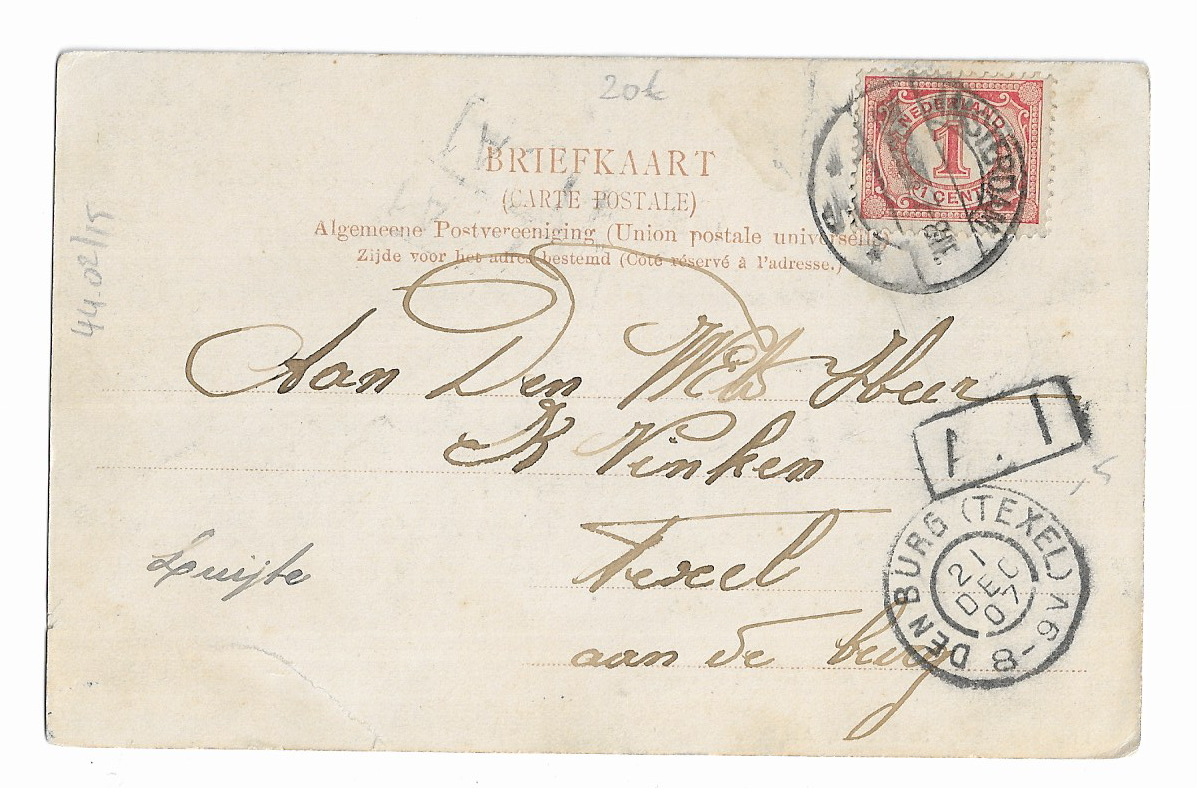 BRIEFKAART
(CARTE POSTALE)
Algemeene Postvereeniging (Union postale universelle)
Zijde voor het adres bestemd (Coté réservé à l'adresse.)
NEDERLAND
1
CENT
44-02/15
Aan Den WEd Heer
K Vinken
Texel
aan de burg
Luijte
DEN BURG (TEXEL)
21
DEC
07
8-9V